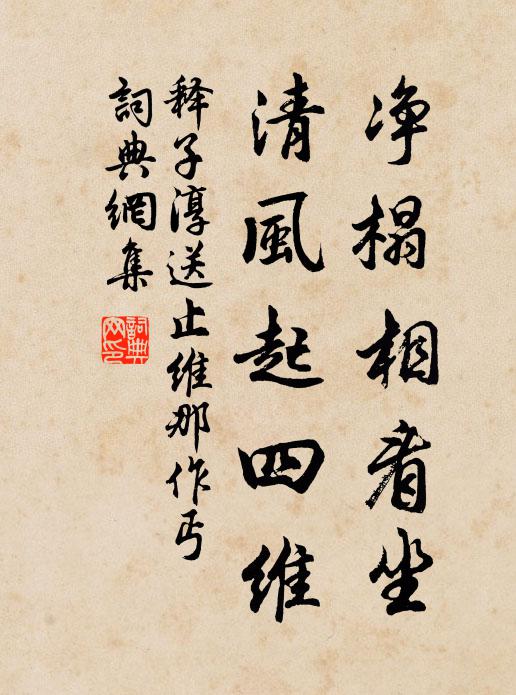 净榻相看坐
清風起四维
释子淳送止维那作丐
詞典網集
詞典网印